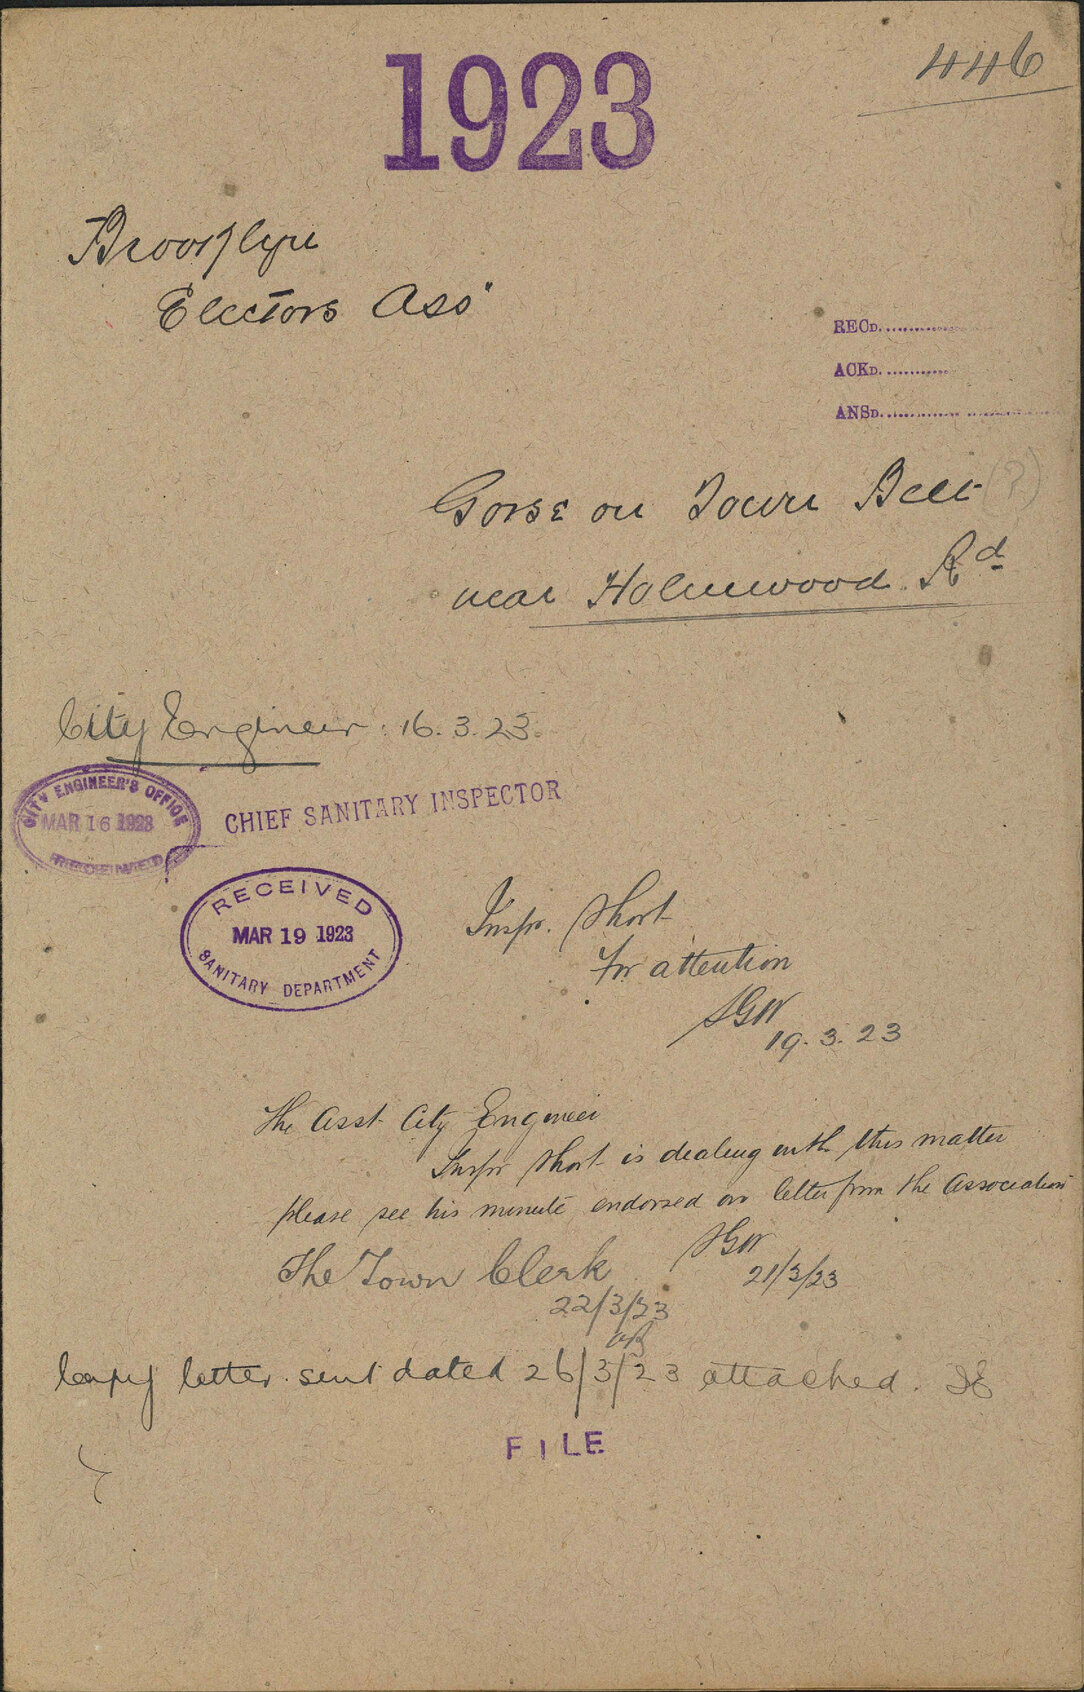 446
1923
Brooklyn
Electors Assn
RECD.
ACKD.
ANSD.
Gorse on Town Belt (?)
near Holmwood Rd
City Engineer: 16.3.23.
CITY ENGINEER'S OFFICE
MAR 16 1923
CHIEF SANITARY INSPECTOR
RECEIVED
MAR 19 1923
SANITARY DEPARTMENT
Inspr. Short
For attention
19.3.23
The Asst City Engineer
Inspr Short is dealing with this matter
please see his minute endorsed on letter from the Association
21/3/23
The Town Clerk
22/3/23
Copy letter sent dated 26/3/23 attached.
FILE